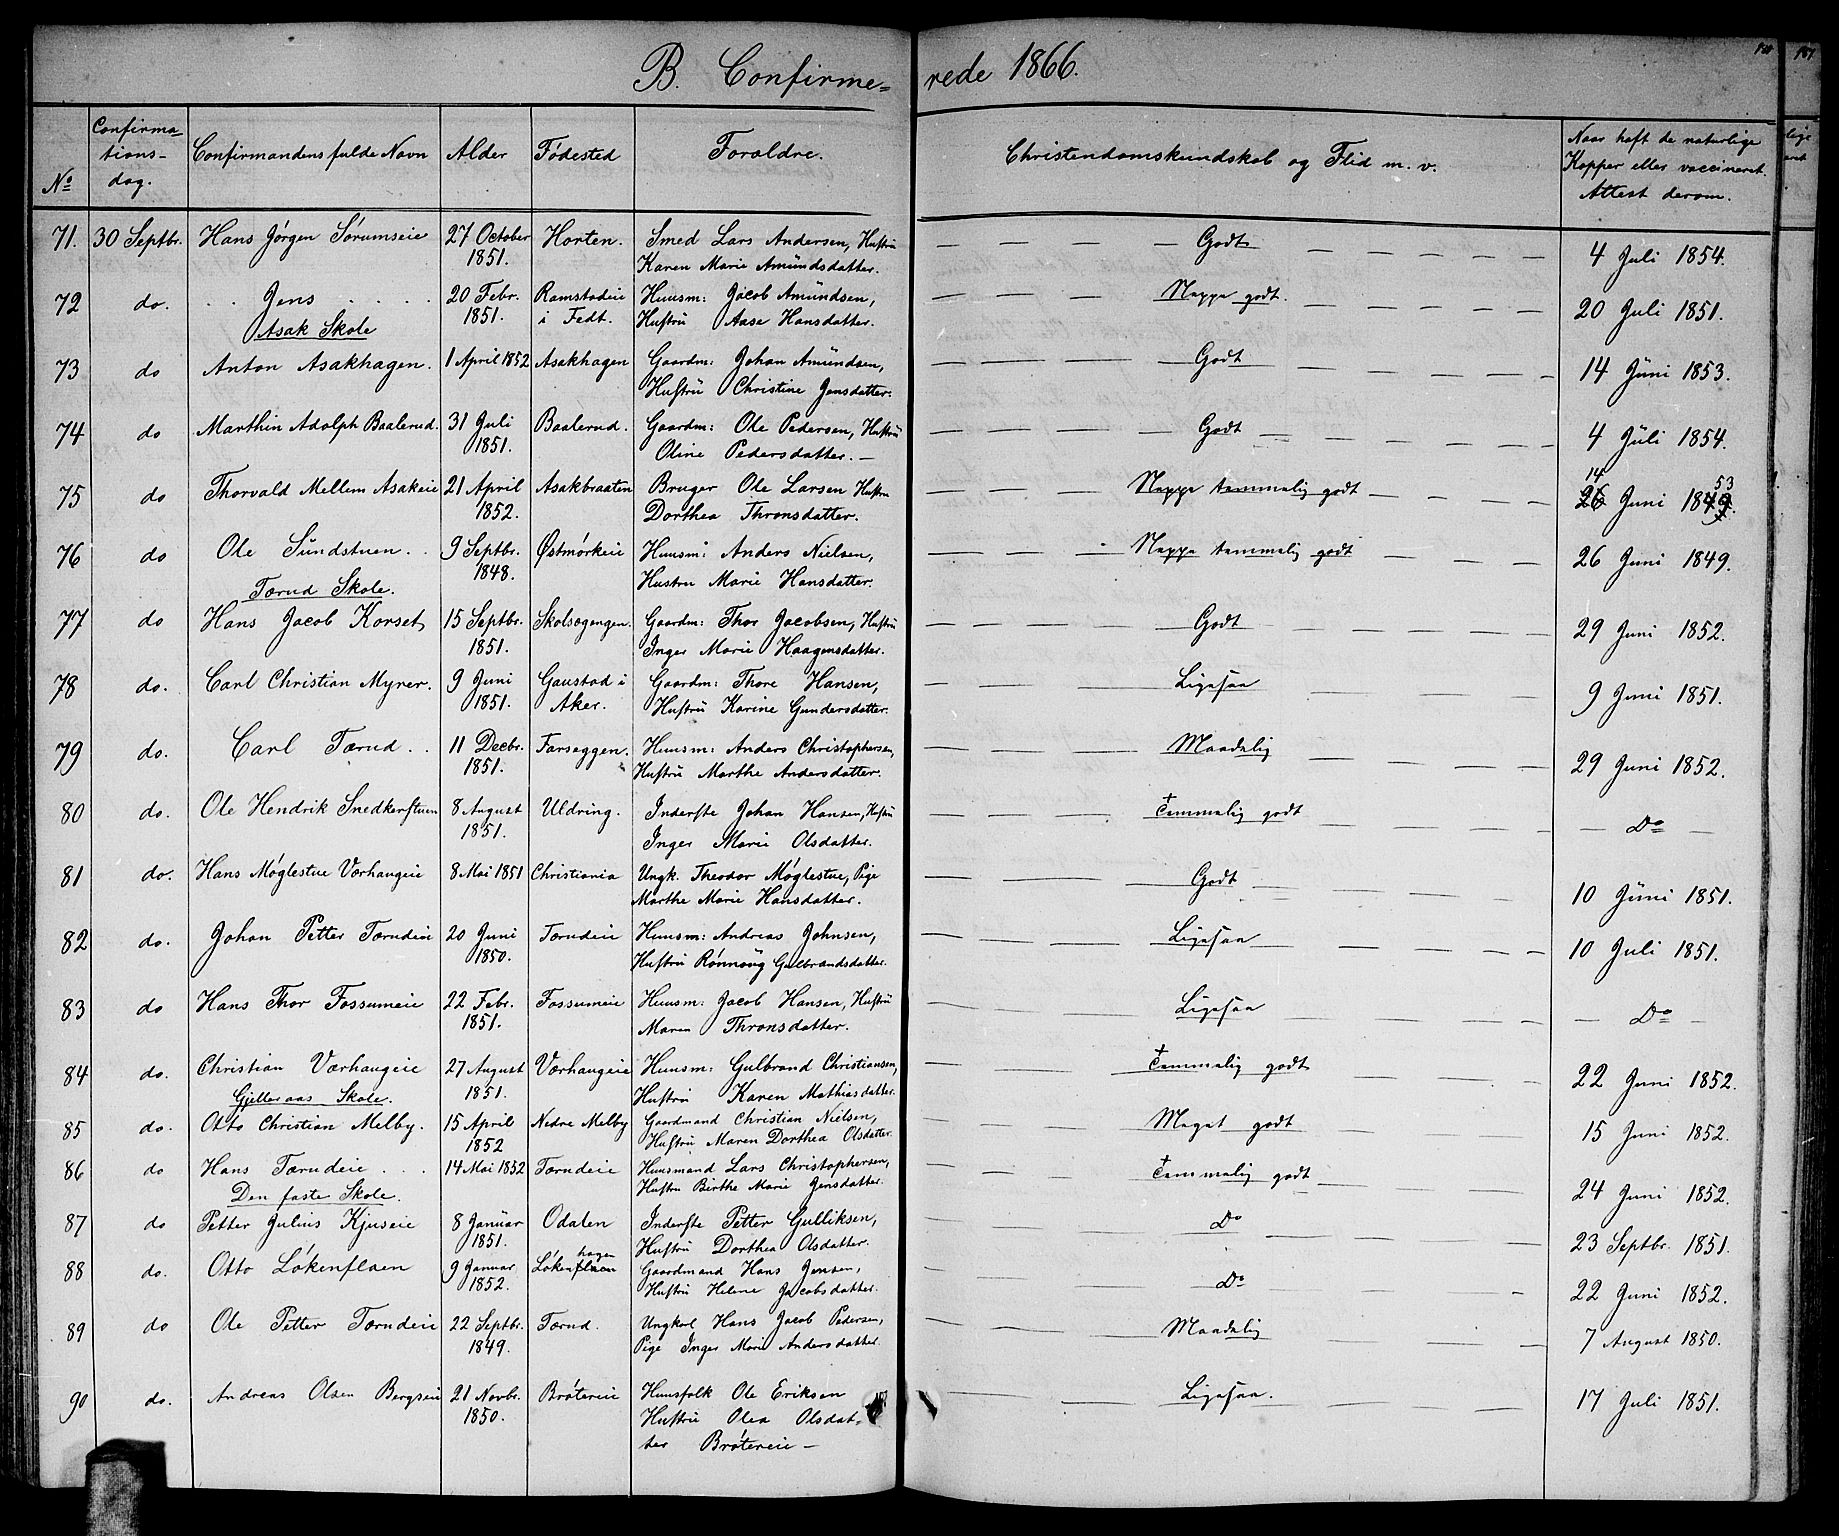 B. Confirme=
rede 1866.
No
Confirma=
tions-
dag.
Confirmandens fulde Navn
Alder
Fødested
Forældre.
Christendomskundskab og Flid m. v.
Naar haft de naturlige
Kopper eller vaccineret.
Attest derom.
71. 30 Septbr. Hans Jørgen Sørumseie 27 October Horten. Smed Lars Andersen, Hustru — Godt — 4 Juli 1854.
1851. Karen Marie Amundsdatter.
72 do. Jens 20 Febr. Ramstadeie Huusm: Jacob Amundsen, — Neppe godt. — 20 Juli 1851.
Asak Skole 1851. i Fedt. Hustru Aase Hansdatter.
73 do Anton Asakhagen. 1 April 1852 Asakhagen Gaardm: Johan Amundsen, — Godt — 14 Juni 1853.
Hustru Christine Jensdatter.
74 do Marthin Adolph Baalerud. 31 Juli Baalerud. Gaardm: Ole Pedersen, Hustru — Godt — 4 Juli 1854.
1851. Oline Pedersdatter. —
75 do Thorvald Mellem Asakeie 21 April Asakbraaten Bruger Ole Larsen Hustru — Neppe temmelig godt — 14 26 Juni 1849. 53
1852. Dorthea Thronsdatter.
76 do Ole Sundstuen. 9 Septbr. Østmørkeie Huusm: Anders Nielsen, — Neppe temmelig godt — 26 Juni 1849.
Tærud Skole. 1848. Hustru Marie Hansdatter.
77 do Hans Jacob Korset 15 Septbr. Skolsegengen. Gaardm: Thor Jacobsen, Hustru — Godt — 29 Juni 1852.
1851. Inger Marie Haagensdatter.
78 do. Carl Christian Myrer. 9 Juni Gaustad i Gaardm: Thore Hansen, — Ligesaa — 9 Juni 1851.
1851. Aker. Hustru Karine Gundersdatter.
79 do. Carl Tærud. 11 Decbr. Farseggen. Huusm: Anders Christophersen, — Maadelig — 29 Juni 1852.
1851. Hustru Marthe Andersdatter.
80 do. Ole Hendrik Snedkerstuen 8 August Uldring. Inderste Johan Hansen, Hustru — temmelig godt — Do —
1851. Inger Marie Olsdatter.
81 do. Hans Møglestue Værhaugeie 8 Mai 1851 Christiania Ungk. Theodor Møglestue, Pige — Godt — 10 Juni 1851.
Marthe Marie Hansdatter.
82 do. Johan Petter Tærudeie 20 Juni Tærudeie Huusm: Andreas Johnsen, — Ligesaa — 10 Juli 1851.
1850. Hustru Rønnaug Gulbrandsdatter.
83 do Hans Thor Fossumeie 22 Febr. Fossumeie Huusm: Jacob Hansen, Hustru — Ligesaa — Do —
1851. Maren Thronsdatter.
84 do. Christian Værhaugeie 27 August Værhaugeie Huusm: Gulbrand Christiansen, — temmelig godt — 22 Juni 1852.
Gjelleraas Skole. 1851. Hustru Karen Mathiasdatter.
85 do. Otto Christian Melby. 15 April Nedre Melby Gaardmand Christian Nielsen, — Meget godt — 15 Juni 1852.
1852 Hustru Maren Dorthea Olsdatter.
86 do Hans Tærudeie 14 Mai 1852 Tærudeie Huusmand Lars Christophersen, — temmelig godt — 24 Juni 1852.
Den faste Skole. Hustru Birthe Marie Jensdatter.
87 do Petter Julius Kjuseie 8 Januar Odalen Inderste Petter Gulliksen, — Do — 23 Septbr. 1851.
1851. Hustru Dorthea Olsdatter.
88 do. Otto Løkenflaen 9 Januar Løkenflaen hagen Gaardmand Hans Jensen, — Do — 22 Juni 1852.
1852. Hustru Helene Jacobsdatter.
89 do Ole Petter Tærudeie 22 Septbr. Tærud. Ungkarl Hans Jacob Pedersen, — Maadelig — 7 August 1850.
1849. Pige Inger Marie Andersdatter.
90 do. Andreas Olsen Bergseie 21 Novbr. Brøtereie Huusfolk Ole Eriksen — Ligesaa. — 17 Juli 1851.
1850. Hustru Olea Olsdat=
ter Brøtereie —